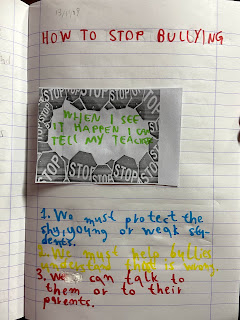 HOW TO STOP BULLYING
STOP
WHEN I SEE
IT HAPPEN I CAN
TELL MY TEACHER
STOP
1. We must protect the
shy, young or weak stu-
dents.
2. We must help bullies
understand that is wrong.
3. We can talk to
them or to their
parents.